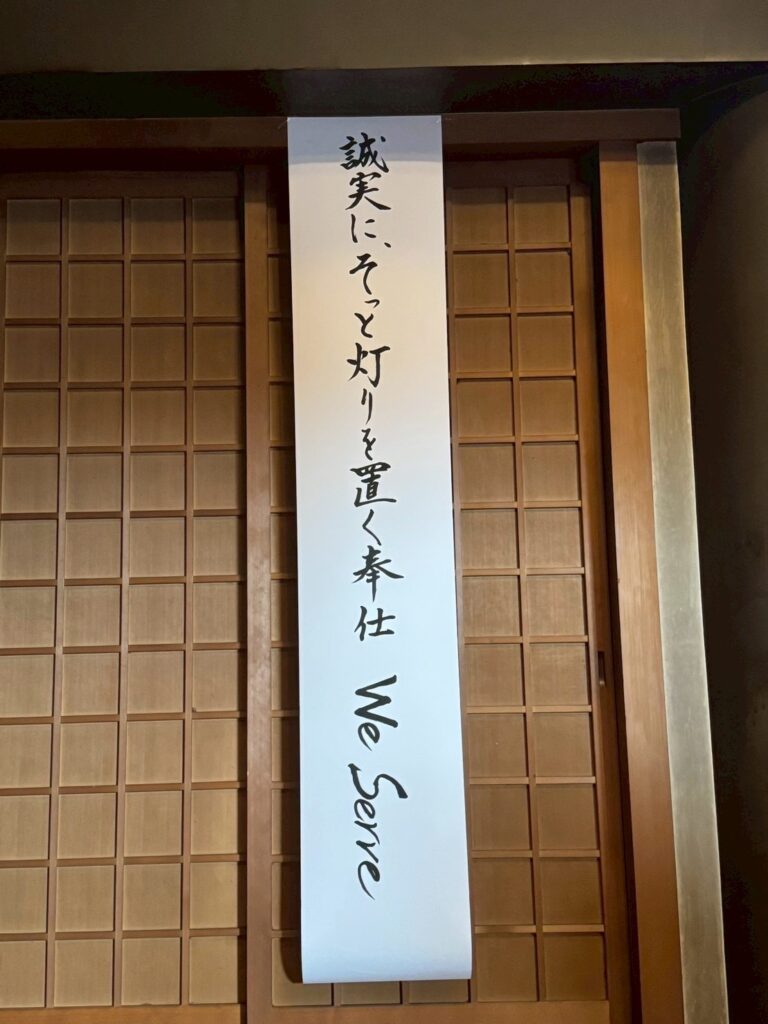 誠実に、そっと灯りを置く奉仕 We Serve